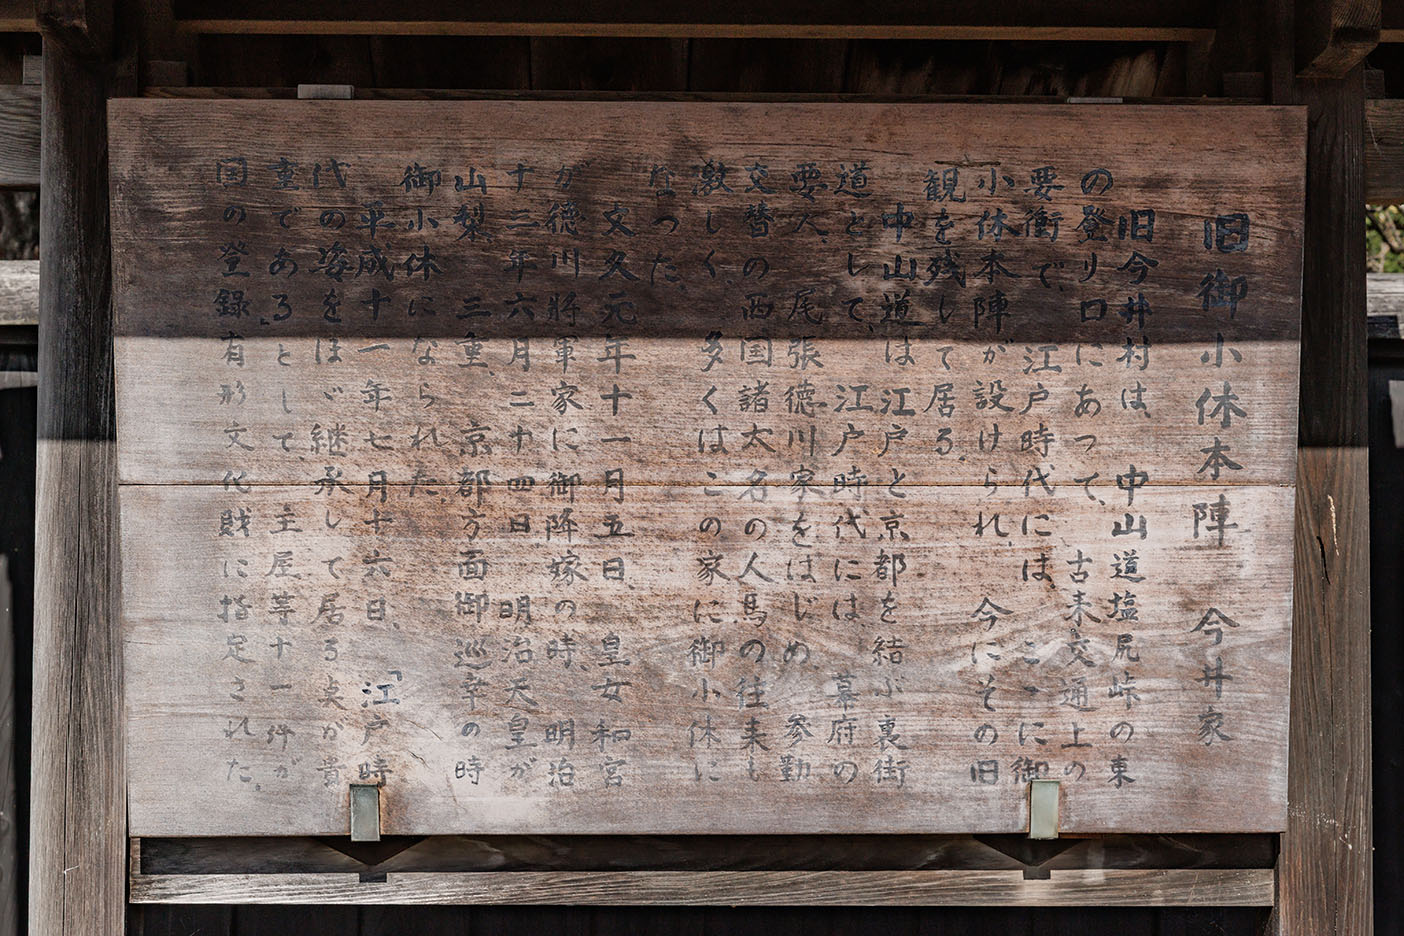 旧御小休本陣　今井家
旧今井村は、中山道塩尻峠の東
の登り口にあって、古来交通上の
要衝で、江戸時代には、ここに御
小休本陣が設けられ、今にその旧
観を残して居る。
中山道は江戸と京都を結ぶ裏街
道として、江戸時代には、幕府の
要人、尾張徳川家をはじめ、参勤
交替の西国諸太名の人馬の往来も
激しく、多くはこの家に御小休に
なった。
文久元年十一月五日、皇女和宮
が徳川將軍家に御降嫁の時、明治
十三年六月二十四日、明治天皇が
山梨、三重、京都方面御巡幸の時
御小休になられた。
平成十一年七月十六日、「江戸時
代の姿をほゞ継承して居る点が貴
重である」として、主屋等十一件が
国の登録有形文化財に指定された。